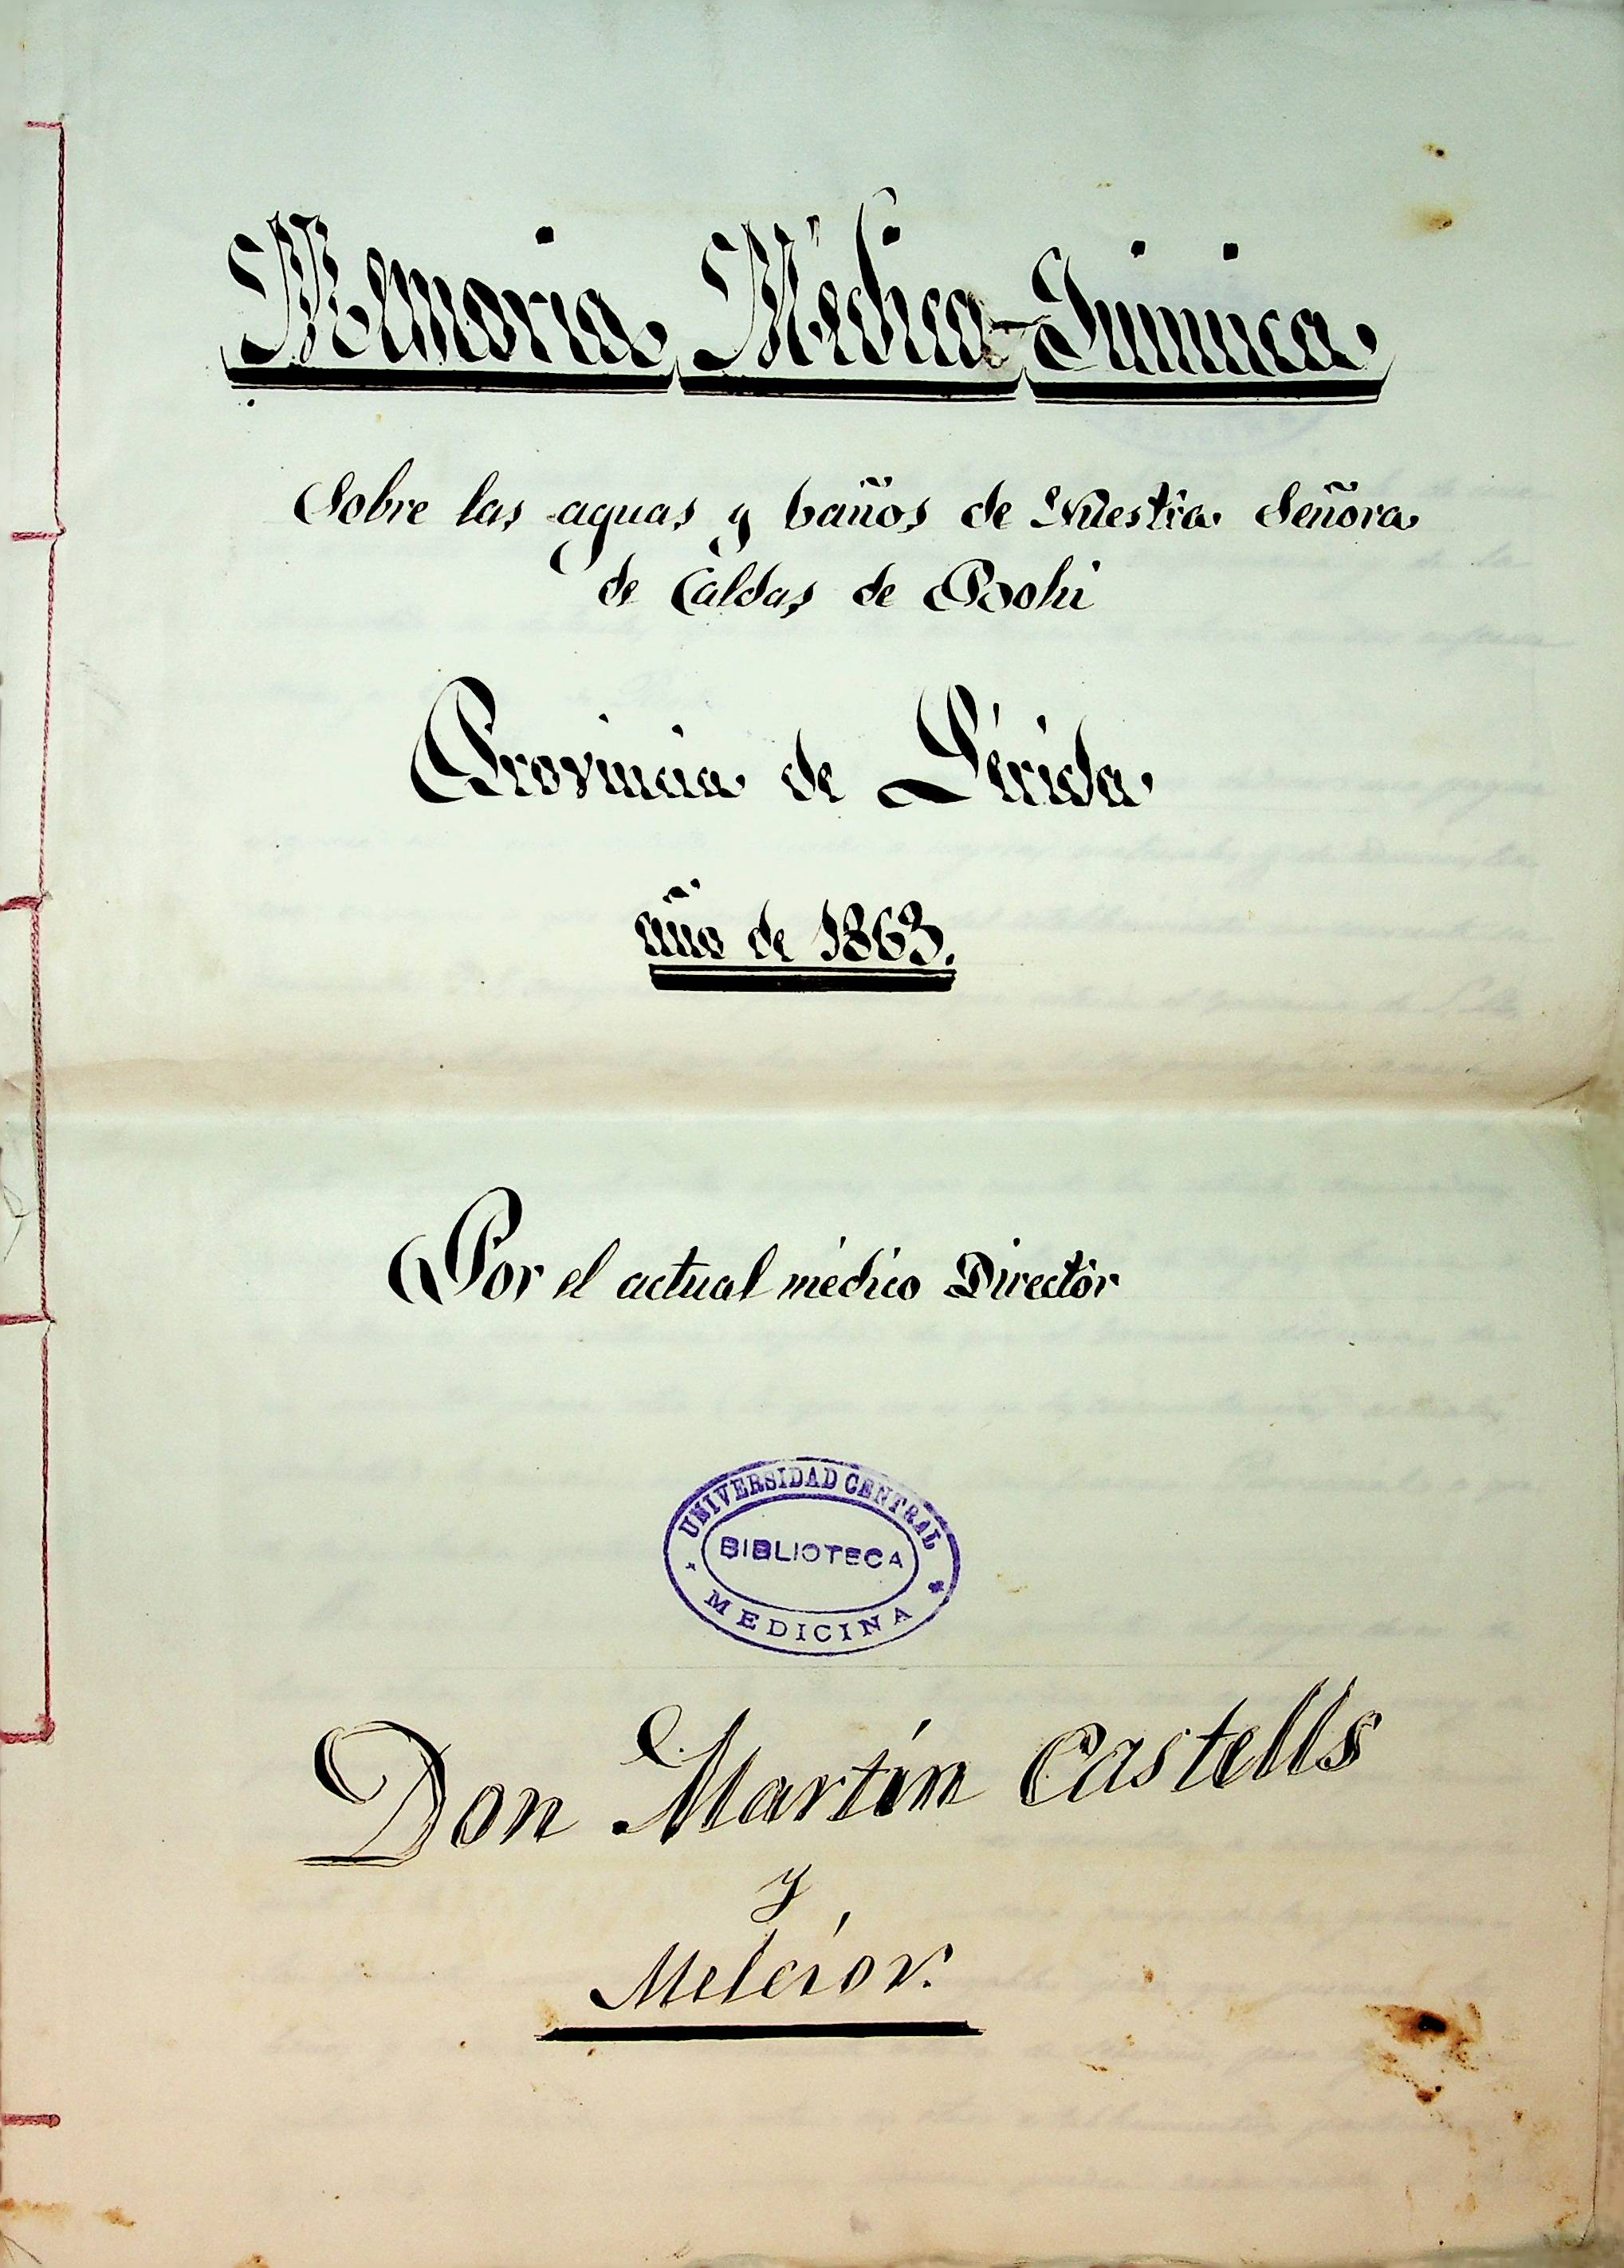 Memoria Médica-Quimica
Sobre las aguas y baños de Nuestra Señora
de Caldas de Bohi
Provincia de Lérida
año de 1863.
Por el actual médico Director
UNIVERSIDAD CENTRAL
BIBLIOTECA
MEDICINA
Don Martín Castells
y
Melcior.